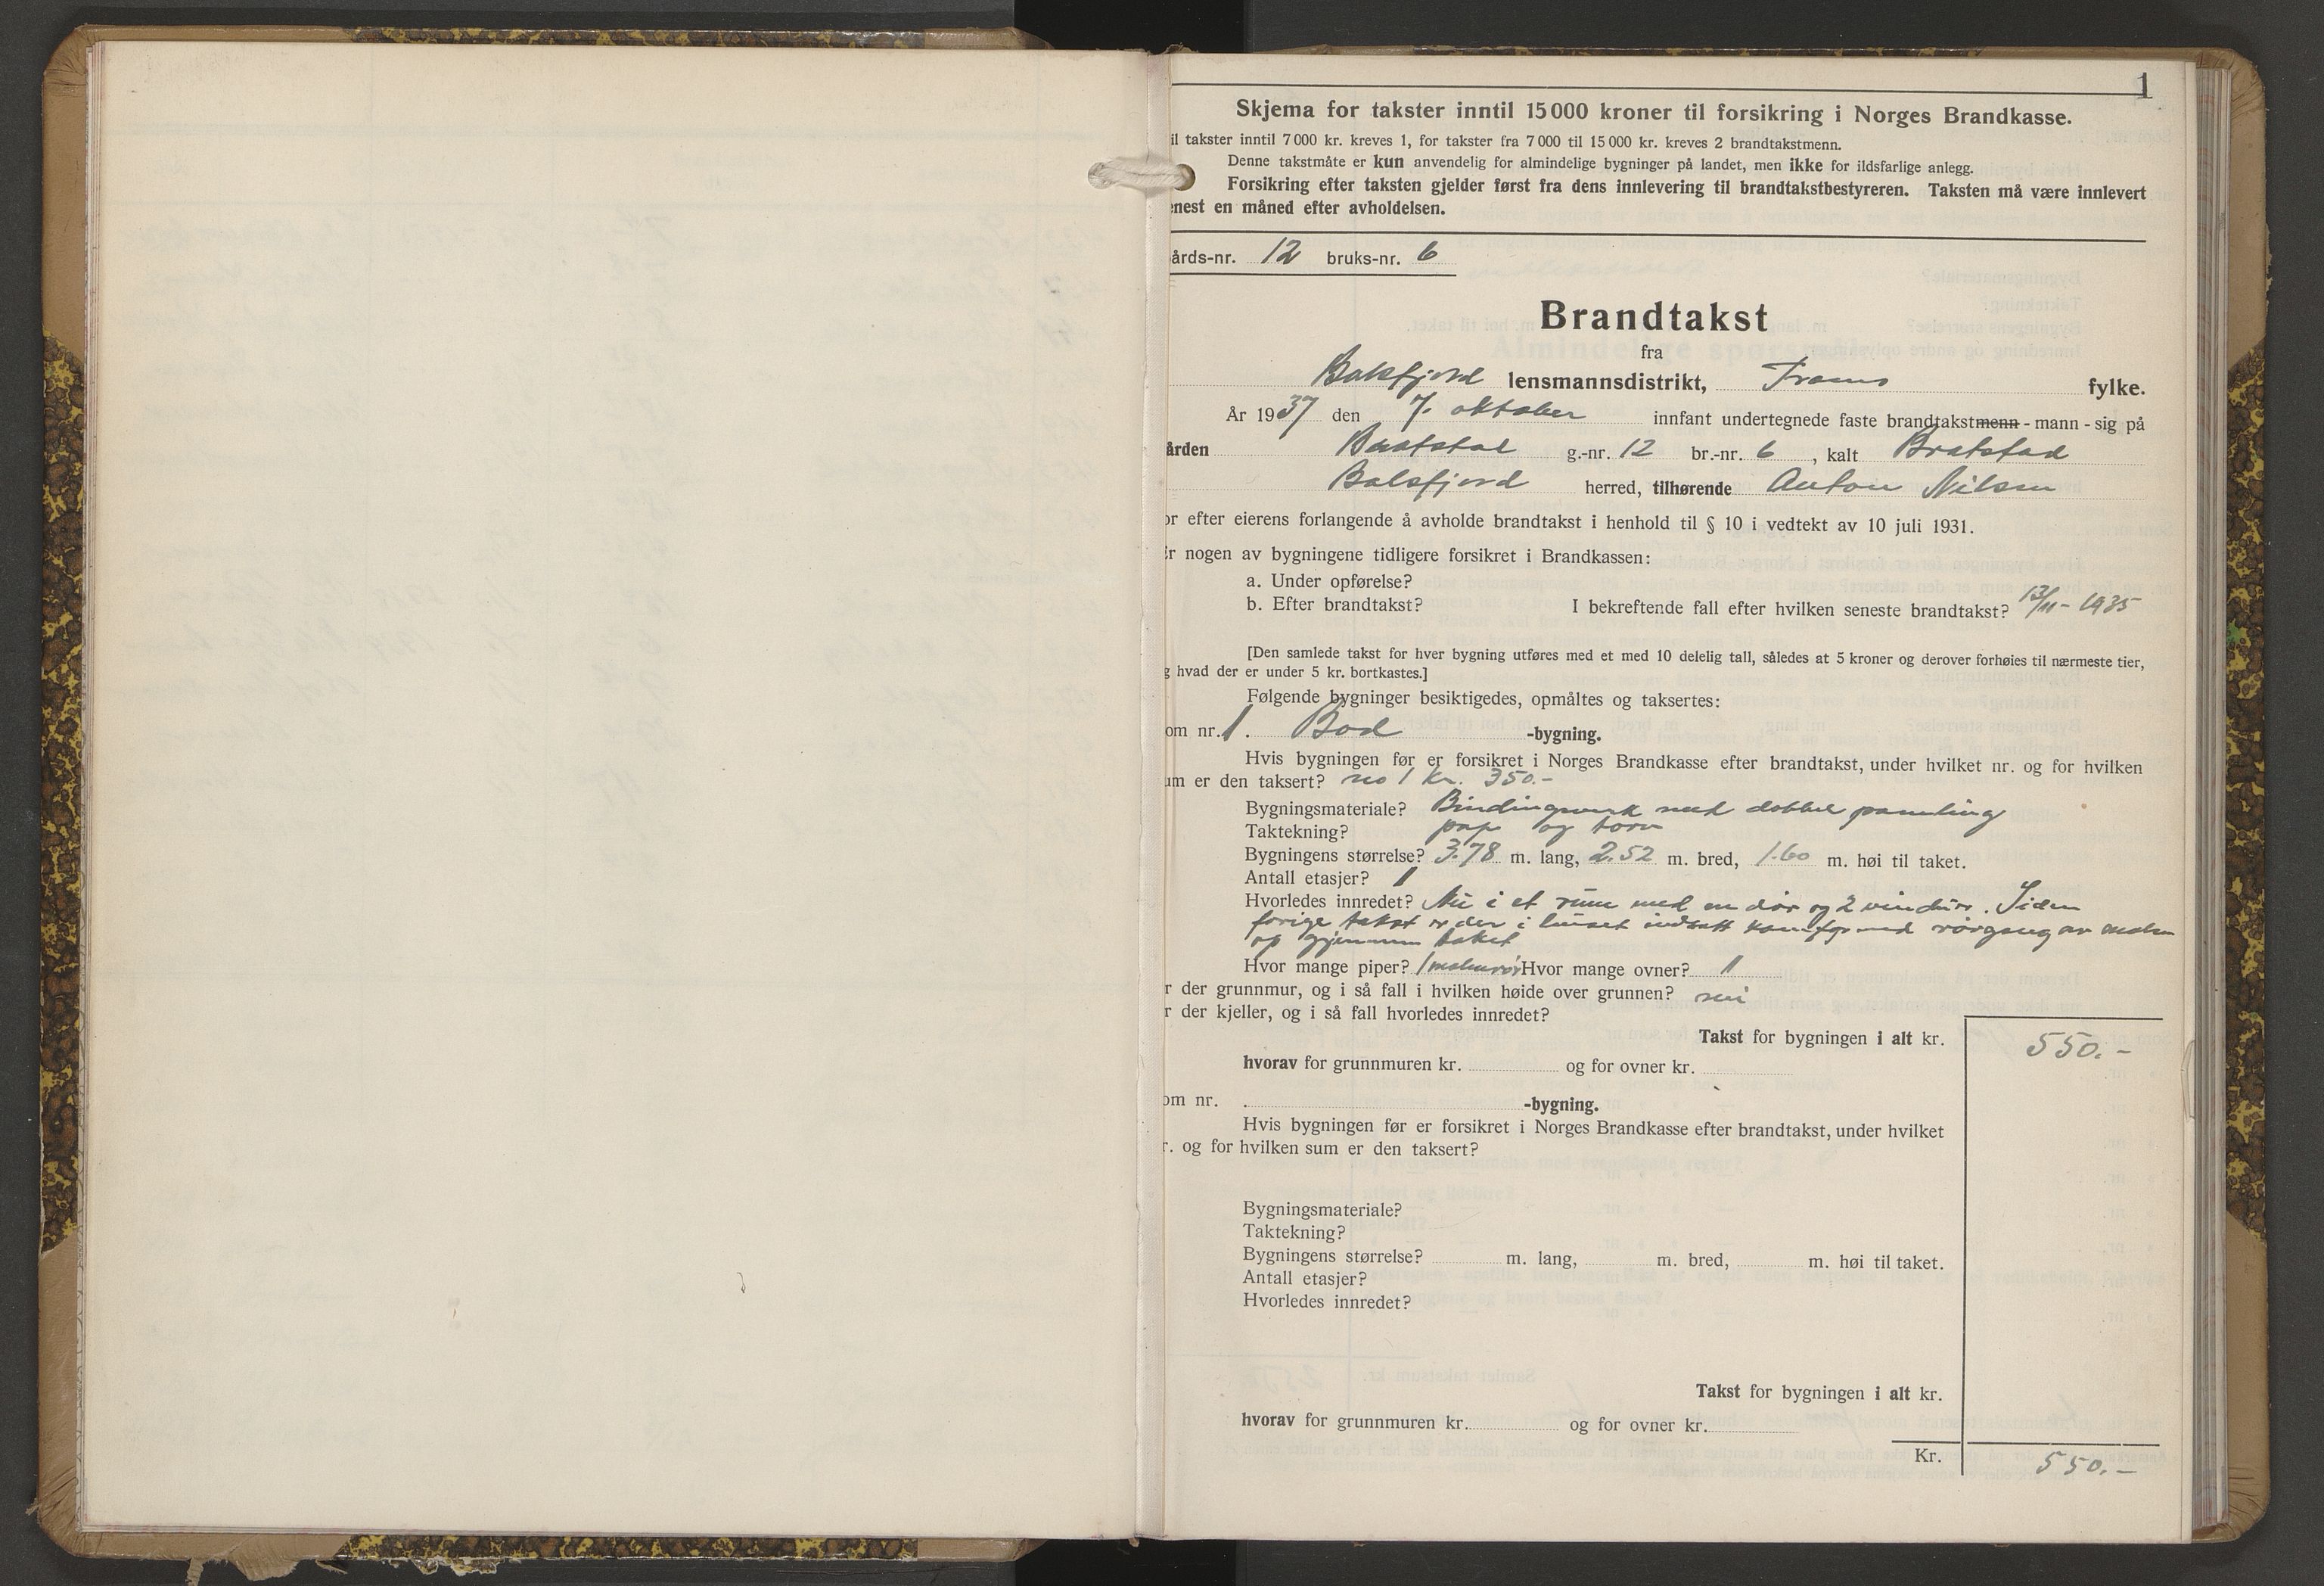 1
Skjema for takster inntil 15 000 kroner til forsikring i Norges Brandkasse.
il takster inntil 7 000 kr. kreves 1, for takster fra 7 000 til 15 000 kr. kreves 2 brandtakstmenn.
Denne takstmåte er kun anvendelig for almindelige bygninger på landet, men ikke for ildsfarlige anlegg.
Forsikring efter taksten gjelder først fra dens innlevering til brandtakstbestyreren. Taksten må være innlevert
enest en måned efter avholdelsen.
årds-nr. 12 bruks-nr. 6
Brandtakst
fra
Balsfjord lensmannsdistrikt, Troms fylke.
År 1937 den 7. oktober innfant undertegnede faste brandtakstmenn - mann - sig på
ården g.-nr. 12 br.-nr. 6 , kalt Bratstad
Balsfjord herred, tilhørende Anton Nilsen
or efter eierens forlangende å avholde brandtakst i henhold til § 10 i vedtekt av 10 juli 1931.
Er nogen av bygningene tidligere forsikret i Brandkassen:
a. Under opførelse?
b. Efter brandtakst? I bekreftende fall efter hvilken seneste brandtakst? 13/11 - 1935
[Den samlede takst for hver bygning utføres med et med 10 delelig tall, således at 5 kroner og derover forhøies til nærmeste tier,
g hvad der er under 5 kr. bortkastes.]
Følgende bygninger besiktigedes, opmåltes og taksertes:
om nr. 1. Bod -bygning.
Hvis bygningen før er forsikret i Norges Brandkasse efter brandtakst, under hvilket nr. og for hvilken
um er den taksert? no 1 Kr. 350.-
Bygningsmateriale? Bindingverk med dobbel paneling
Taktekning? pap og torv
Bygningens størrelse? 3.78 m. lang, 2.52 m. bred, 1.60 m. høi til taket.
Antall etasjer? 1
Hvorledes innredet? Nu i et rum med en dør og 2 vinduer. Siden
forige takst er der i huset indsatt med rørgang av
op gjennem taket
Hvor mange piper? 1 Hvor mange ovner? 1
r der grunnmur, og i så fall i hvilken høide over grunnen? nei
r der kjeller, og i så fall hvorledes innredet?
Takst for bygningen i alt kr. 550.-
hvorav for grunnmuren kr. og for ovner kr.
om nr. . -bygning.
Hvis bygningen før er forsikret i Norges Brandkasse efter brandtakst, under hvilket
r. og for hvilken sum er den taksert?
Bygningsmateriale?
Taktekning?
Bygningens størrelse? m. lang, m. bred, m. høi til taket.
Antall etasjer?
Hvorledes innredet?
Takst for bygningen i alt kr.
hvorav for grunnmuren kr. og for ovner kr.
Kr. 550.-